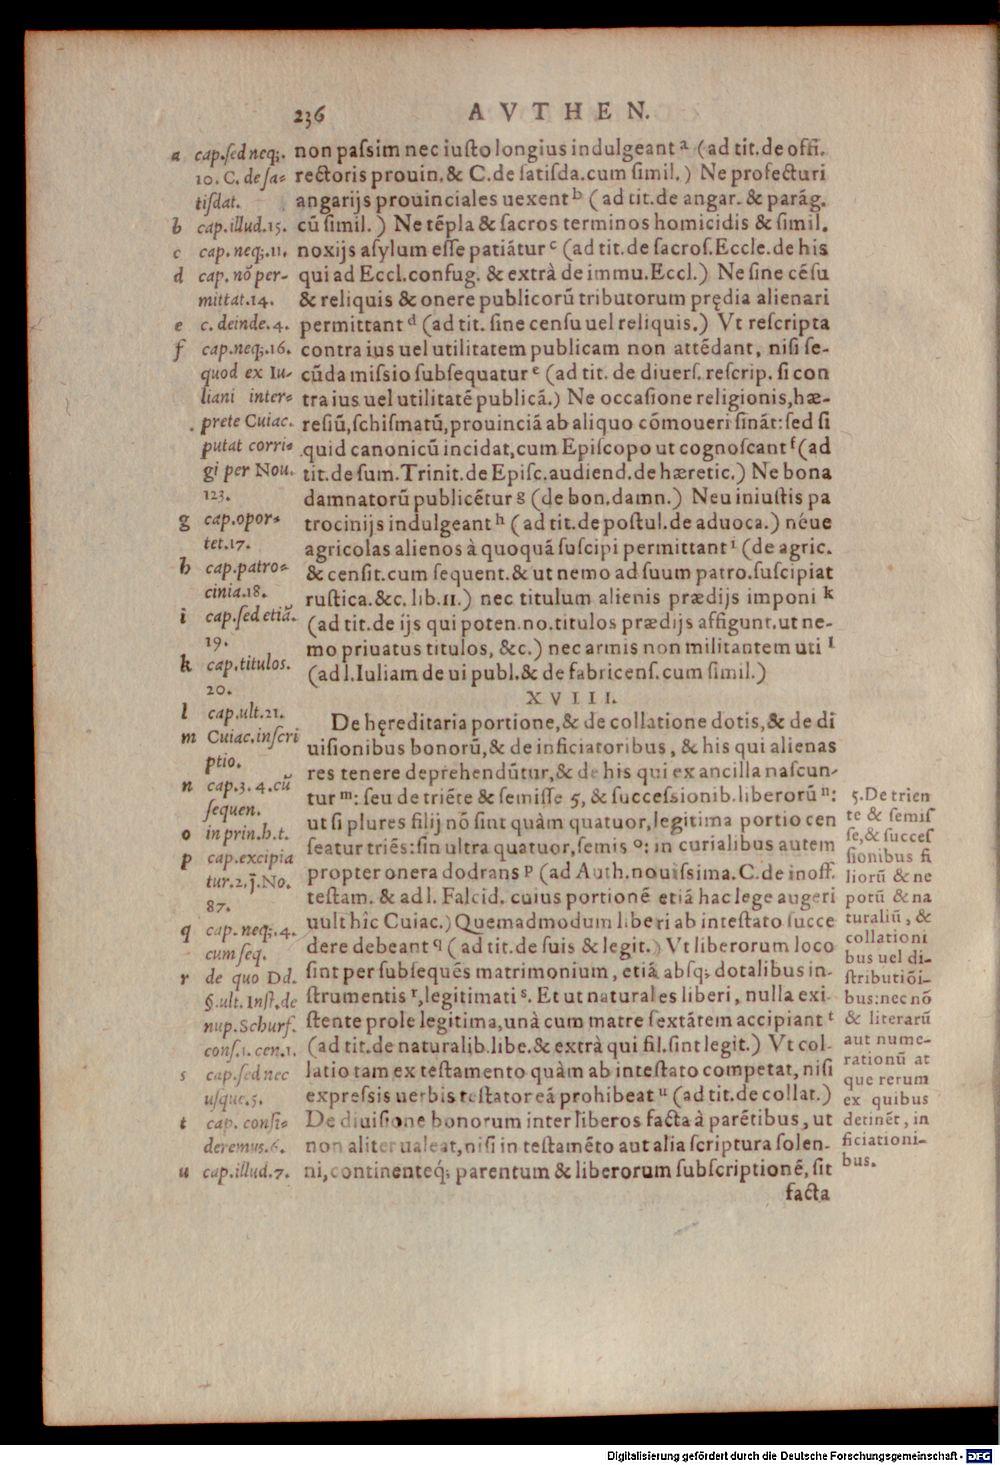 236 AVTHEN.
non paſsim nec iuſto longius indulgeant ᵃ (ad tit. de offi.
rectoris prouin. & C. de ſatiſda. cum ſimil.) Ne profecturi
angarijs prouinciales uexent ᵇ (ad tit. de angar. & parág.
cū ſimil.) Ne tēpla & ſacros terminos homicidis & ſimil.
noxijs aſylum eſſe patiátur ᶜ (ad tit. de ſacroſ. Eccle. de his
qui ad Eccl. confug. & extrà de immu. Eccl.) Ne ſine cēſu
& reliquis & onere publicorū tributorum prędia alienari
permittant ᵈ (ad tit. ſine cenſu uel reliquis.) Vt reſcripta
contra ius uel utilitatem publicam non attēdant, niſi ſe-
cūda miſsio ſubſequatur ᵉ (ad tit. de diuerſ. reſcrip. ſi con
tra ius uel utilitatē publicā.) Ne occaſione religionis, hæ-
reſiū, ſchiſmatū, prouinciā ab aliquo cōmoueri ſināt: ſed ſi
quid canonicū incidat, cum Epiſcopo ut cognoſcant ᶠ (ad
tit. de ſum. Trinit. de Epiſc. audiend. de hæretic.) Ne bona
damnatorū publicētur ᵍ (de bon. damn.) Neu iniuſtis pa
trocinijs indulgeant ʰ (ad tit. de poſtul. de aduoca.) néue
agricolas alienos à quoquā ſuſcipi permittant ⁱ (de agric.
& cenſit. cum ſequent. & ut nemo ad ſuum patro. ſuſcipiat
ruſtica. &c. lib. 11.) nec titulum alienis prædijs imponi ᵏ
(ad tit. de ijs qui poten. no. titulos prædijs affigunt. ut ne-
mo priuatus titulos, &c.) nec armis non militantem uti ˡ
(ad l. Iuliam de ui publ. & de fabricenſ. cum ſimil.)
XVIII.
De hęreditaria portione, & de collatione dotis, & de di
uiſionibus bonorū, & de inficiatoribus, & his qui alienas
res tenere deprehendūtur, & de his qui ex ancilla naſcun-
tur ᵐ: ſeu de triēte & ſemiſſe 5, & ſucceſsionib. liberorū ⁿ:
ut ſi plures filij nō ſint quàm quatuor, legitima portio cen
ſeatur triēs: ſin ultra quatuor, ſemis ᵒ: in curialibus autem
propter onera dodrans ᵖ (ad Auth. nouiſsima. C. de inoff.
teſtam. & ad l. Falcid. cuius portionē etiā hac lege augeri
uult hîc Cuiac.) Quemadmodum liberi ab inteſtato ſucce
dere debeant ᑫ (ad tit. de ſuis & legit.) Vt liberorum loco
ſint per ſubſequēs matrimonium, etiā abſq; dotalibus in-
ſtrumentis ʳ, legitimati ˢ. Et ut naturales liberi, nulla exi-
ſtente prole legitima, unà cum matre ſextātem accipiant ᵗ
(ad tit. de naturalib. libe. & extrà qui fil. ſint legit.) Vt col-
latio tam ex teſtamento quàm ab inteſtato competat, niſi
expreſsis uerbis teſtator eā prohibeat ᵘ (ad tit. de collat.)
De diuiſione bonorum inter liberos facta à parētibus, ut
non aliter ualeat, niſi in teſtamēto aut alia ſcriptura ſolen-
ni, continenteq; parentum & liberorum ſubſcriptionē, ſit
facta
a cap. ſed neq;.
10. C. de ſa-
tiſdat.
b cap. illud. 15.
c cap. neq;. 11.
d cap. nō per-
mittat. 14.
e c. deinde. 4.
f cap. neq;. 16.
quod ex Iu-
liani inter-
prete Cuiac.
putat corri-
gi per Nou.
123.
g cap. opor-
tet. 17.
h cap. patro-
cinia. 18.
i cap. ſed etiā.
19.
k cap. titulos.
20.
l cap. ult. 21.
m Cuiac. inſcri
ptio.
n cap. 3. 4. cū
ſequen.
o in prin. h. t.
p cap. excipia
tur. 2. j. No.
87.
q cap. neq;. 4.
cum ſeq.
r de quo Dd.
§. ult. Inſt. de
nup. Schurf.
conſ. 1. cen. 1.
s cap. ſed nec
uſque. 5.
t cap. conſi-
deremus. 6.
u cap. illud. 7.
5. De trien
te & ſemiſ
ſe, & ſucceſ
ſionibus fi
liorū & ne
potū & na
turaliū, &
collationi
bus uel di-
ſtributiōi-
bus: nec nō
& literarū
aut nume-
rationū at
que rerum
ex quibus
detinēt, in
ficiationi-
bus.
Digitalisierung gefördert durch die Deutsche Forschungsgemeinschaft - DFG